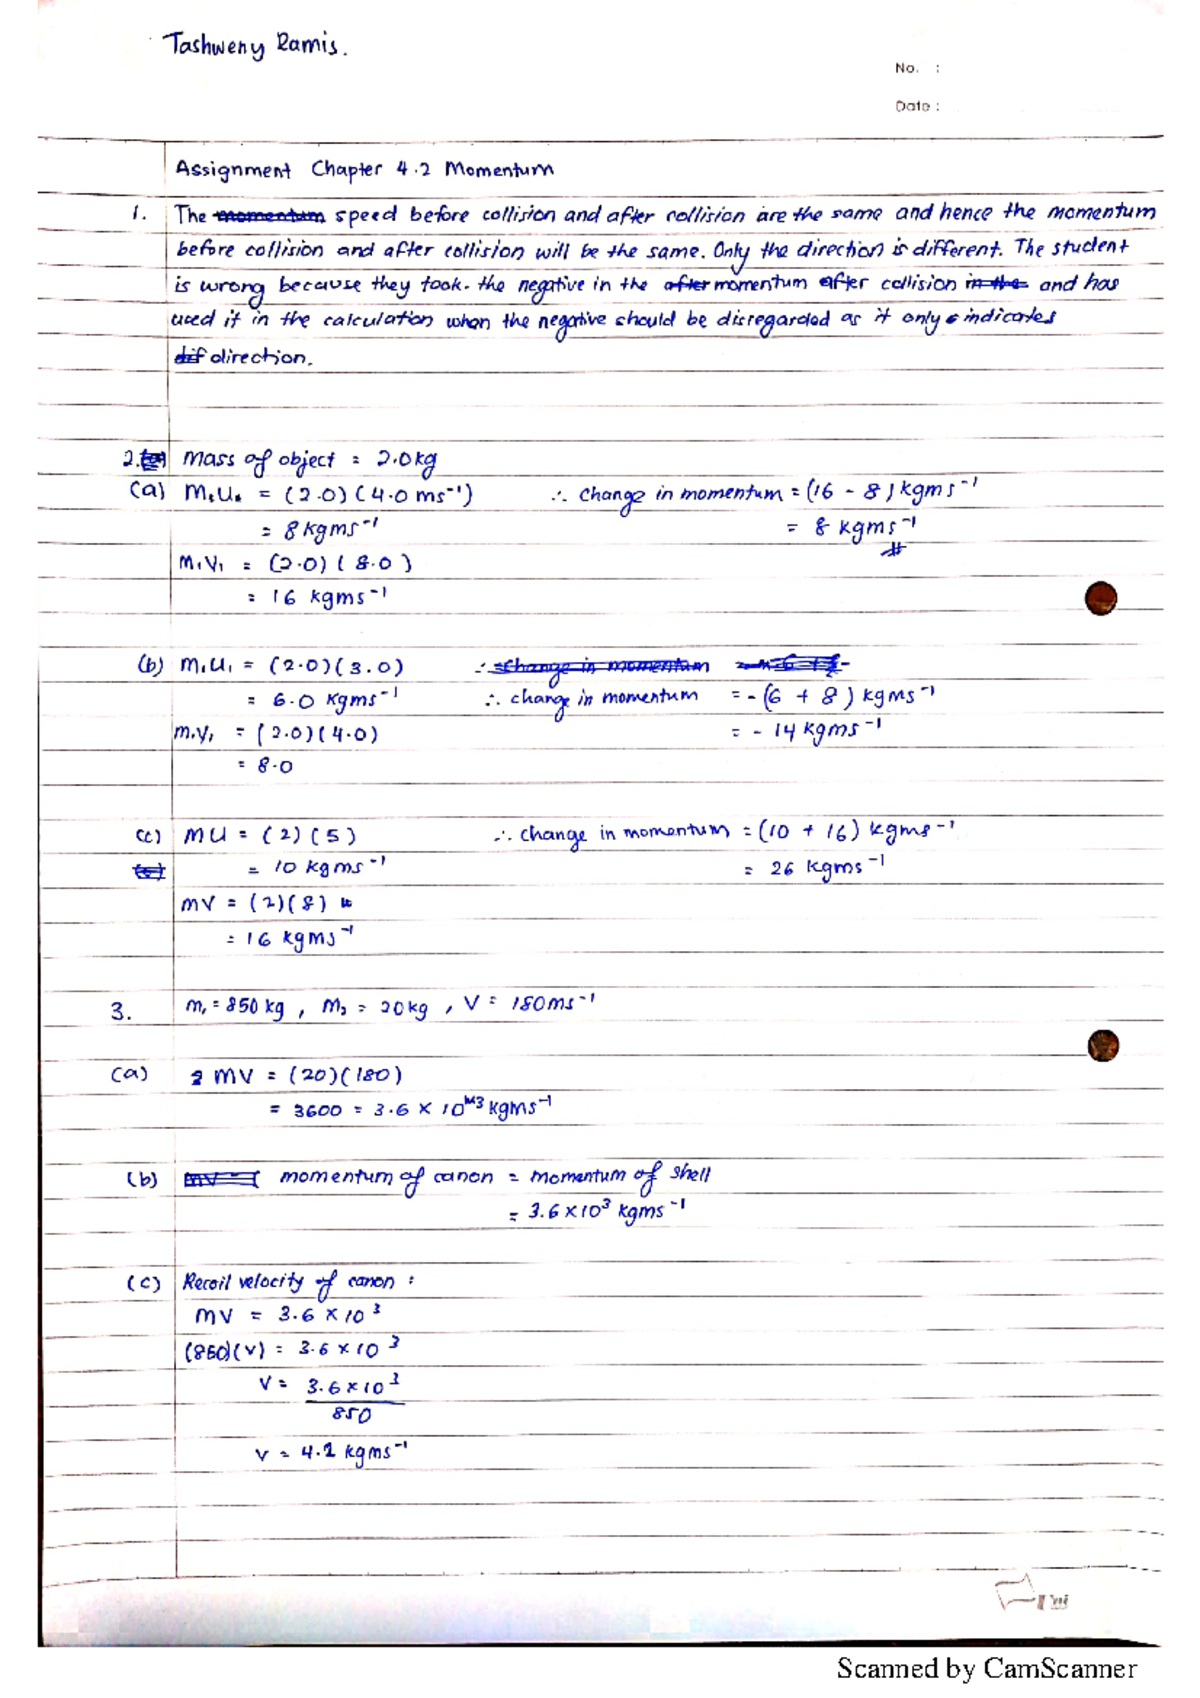 Tashweny Ramis.
No. :
Date :
Assignment Chapter 4.2 Momentum
1. The momentum speed before collision and after collision are the same and hence the momentum
before collision and after collision will be the same. Only the direction is different. The student
is wrong because they took the negative in the after momentum after collision in the and has
used it in the calculation when the negative should be disregarded as it only indicates
dif direction.
2. Mass of object = 2.0kg
(a) M₁U₁ = (2.0)(4.0 ms⁻¹) ∴ Change in momentum = (16 - 8) kgms⁻¹
= 8 kgms⁻¹ = 8 kgms⁻¹
M₁V₁ = (2.0)(8.0)
= 16 kgms⁻¹
(b) M₁U₁ = (2.0)(3.0) ∴ change in momentum
= 6.0 kgms⁻¹ ∴ change in momentum = -(6 + 8) kgms⁻¹
m₁V₁ = (2.0)(4.0) = - 14 kgms⁻¹
= 8.0
(c) MU = (2)(5) ∴ change in momentum = (10 + 16) kgms⁻¹
= 10 kgms⁻¹ = 26 kgms⁻¹
MV = (2)(8)
= 16 kgms⁻¹
3. m₁ = 850 kg, M₂ = 20kg, V = 180ms⁻¹
(a) MV = (20)(180)
= 3600 = 3.6 x 10³ kgms⁻¹
(b) mv momentum of canon = momentum of shell
= 3.6 x 10³ kgms⁻¹
(c) Recoil velocity of canon :
MV = 3.6 x 10³
(850)(V) = 3.6 x 10³
V = 3.6 x 10³
850
V = 4.2 kgms⁻¹
Scanned by CamScanner